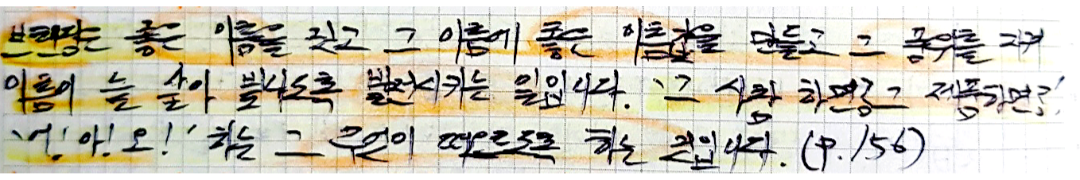 브랜딩은 좋은 이름을 짓고 그 이름에 좋은 이름값을 만들고 그 품위를 지켜
이름이 늘 살아 빛나도록 발전시키는 일입니다. '그 사람 하면? 그 제품 하면?'
'어! 아! 오!' 하는 그 무언이 떠오르도록 하는 겁입니다. (p.156)